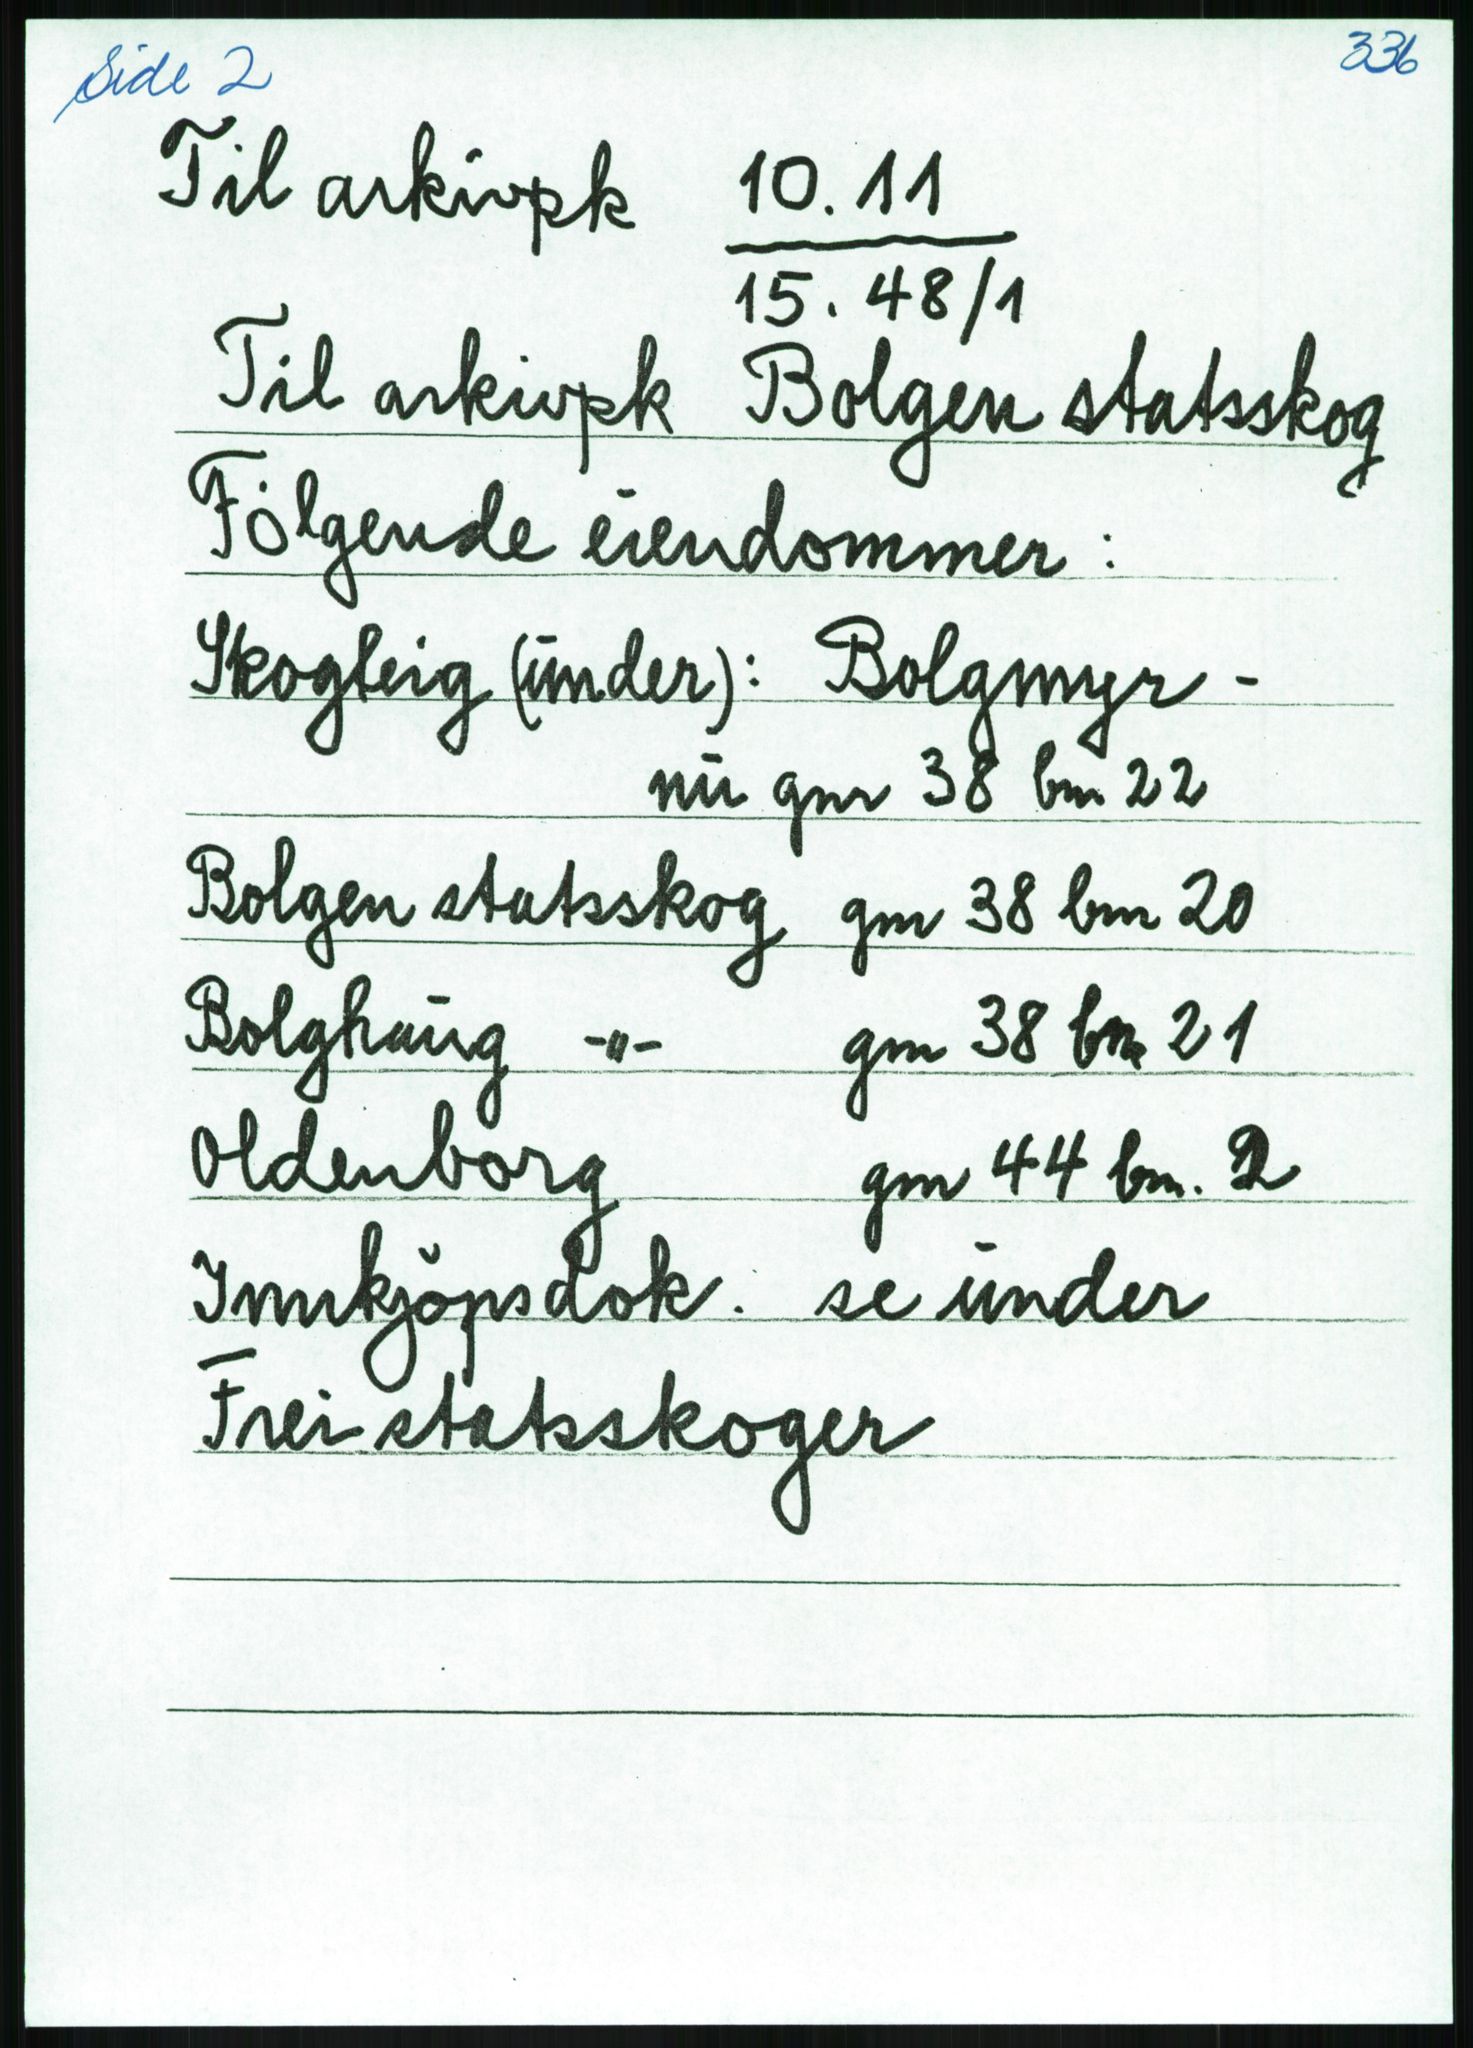 Side 2
336
Til arkivpk 10.11
15.48/1
Til arkivpk Bolgen statsskog
Følgende eiendommer :
Skogteig (under): Bolgmyr -
nu gnr 38 bnr 22
Bolgen statsskog gnr 38 bnr 20
Bolghaug -"- gnr 38 bnr 21
Oldenborg gnr 44 bnr. 2
Innkjöpsdok. se under
Frei statsskoger